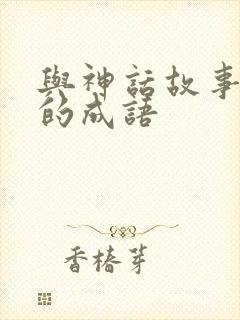 與神話故事
的成語
香椿芽